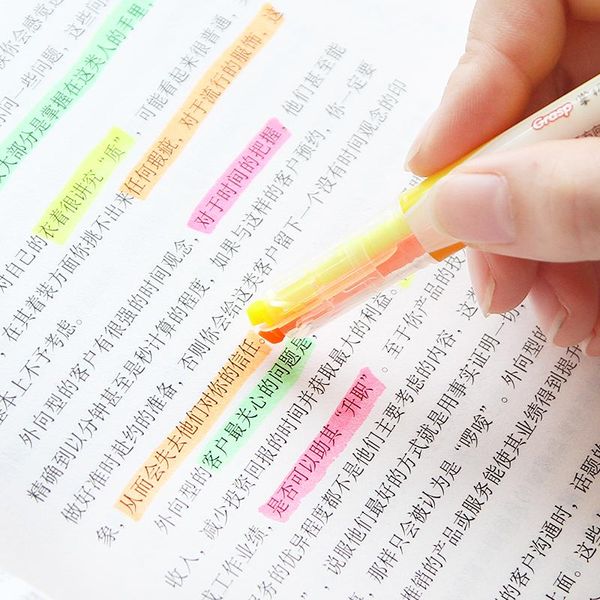 候你会感觉
你问一些问题，这些问
大部分是掌握在这类人的手里，
对自己的衣着很讲究“质”，可能看起来很普通，
，在其着装方面你挑不出来任何瑕疵，对于流行的服饰，这
基本上不予考虑。
外向型的客户有很强的时间观念，对于时间的把握，他们甚至能
精确到以分钟甚至是秒计算的程度，如果与这样的客户预约，你一定要
做好准时赴约的准备，否则你会给这类客户留下一个没有时间观念的印
象，从而会失去他们对你的信任。
外向型的客户最关心的问题是
收入，减少投资回报的时间并获取最大的利益。
工作业绩，是否可以助其“升职”。至于你产品的技
服务的优异程度都不是他们主要考虑的内容，这
，说服他们最好的方式就是用事实证明一切
那样只会被认为是“啰唆”。外向型的
推销的产品或服务能使其业绩得到提升
的客户沟通时，话题的
上面。这些人
Grasp